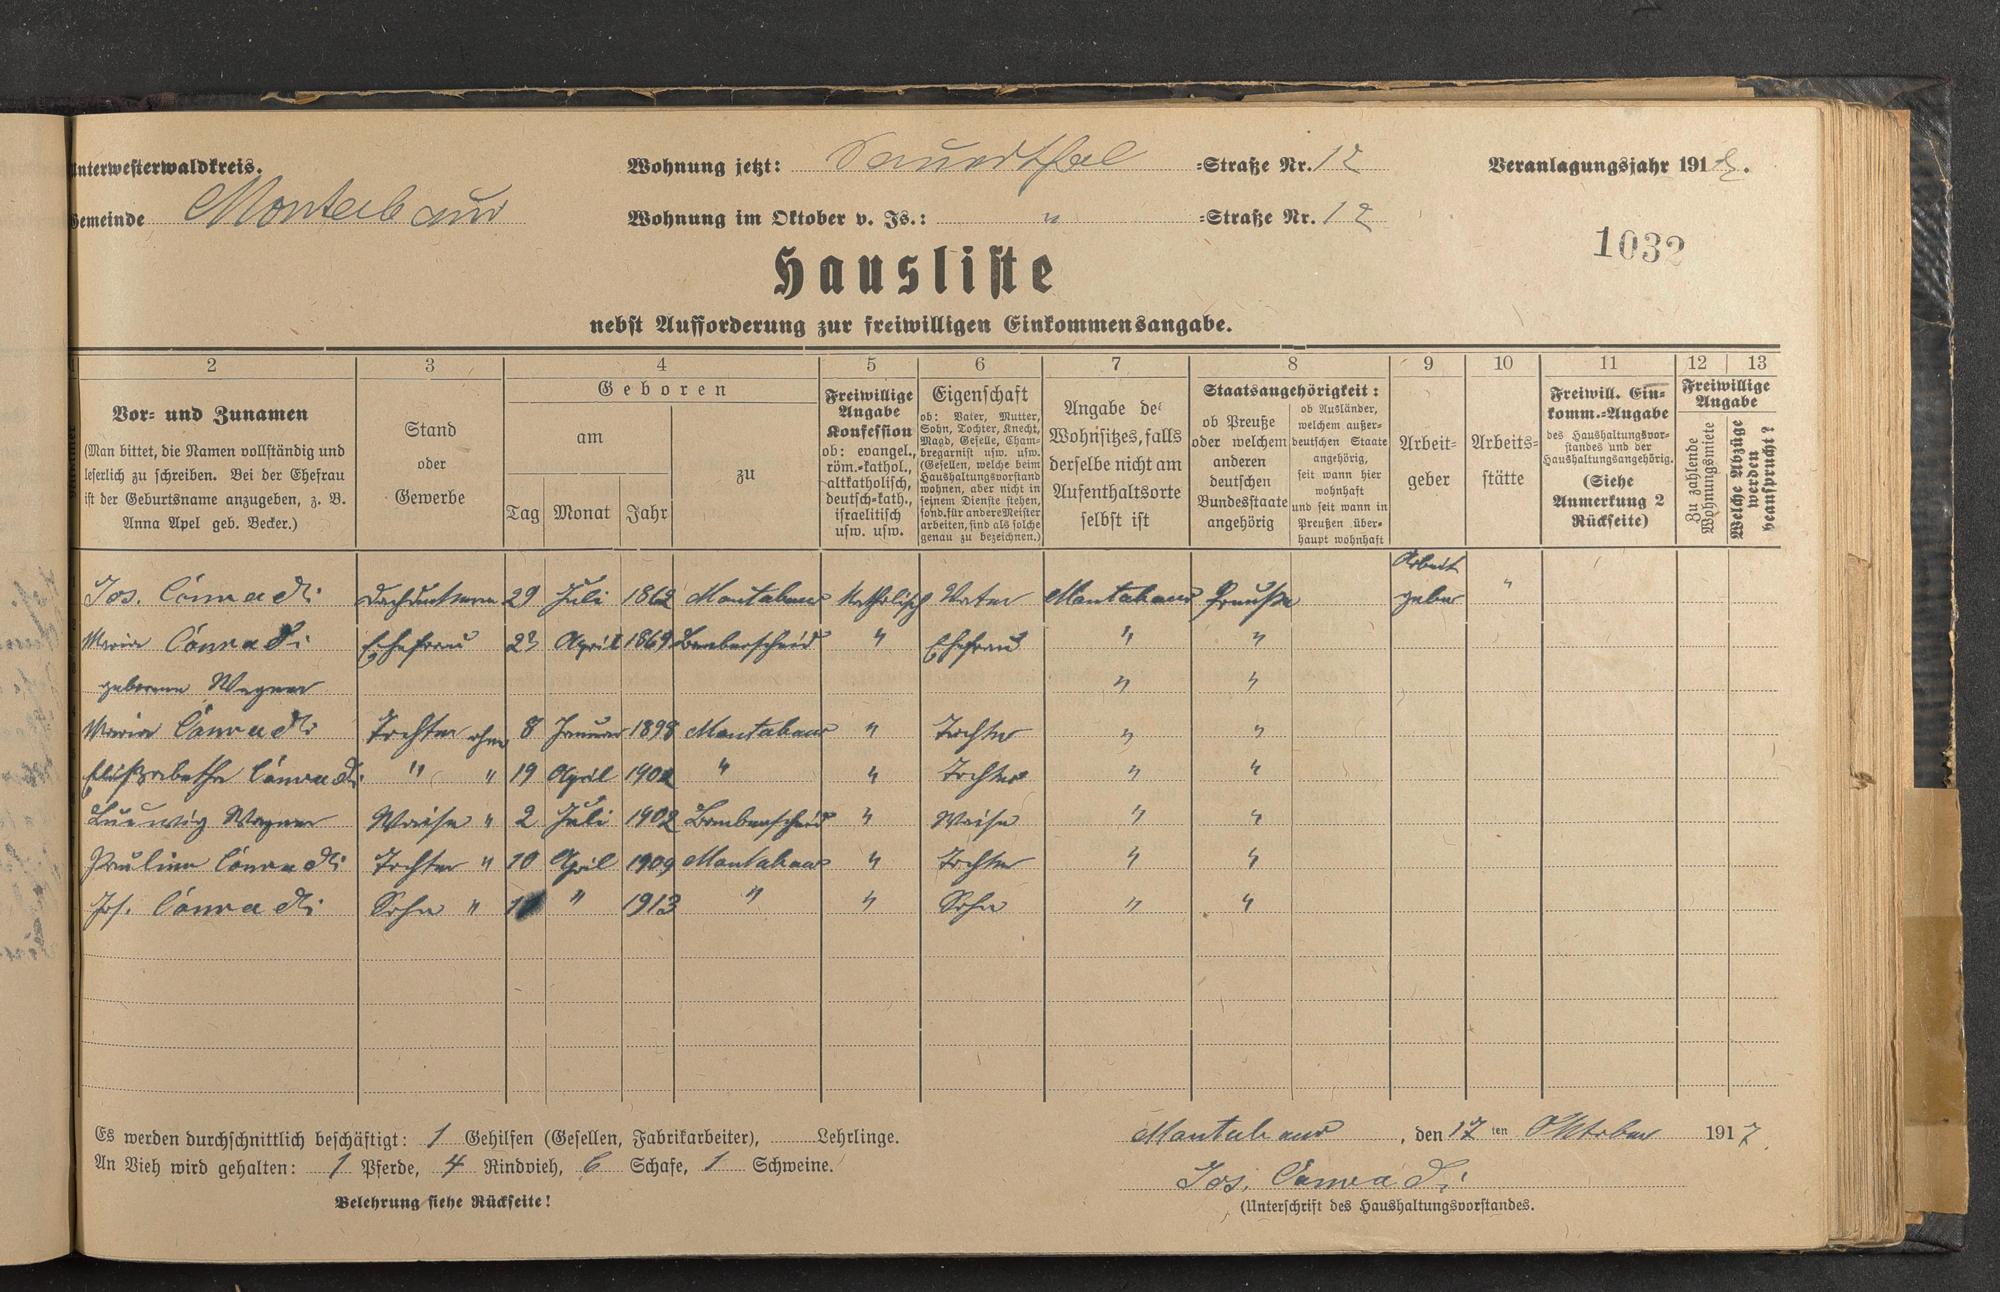 Unterwesterwaldkreis.
Wohnung jetzt: Sauerthal =Straße Nr. 12
Veranlagungsjahr 191
Gemeinde Montabaur
Wohnung im Oktober v. Js.: " =Straße Nr. 12
1032
Hausliste
nebst Aufforderung zur freiwilligen Einkommensangabe.
1 2 3 4 5 6 7 8 9 10 11 12 13
Vor- und Zunamen
(Man bittet, die Namen vollständig und
leserlich zu schreiben. Bei der Ehefrau
ist der Geburtsname anzugeben, z. B.
Anna Apel geb. Becker.)
Stand
oder
Gewerbe
Geboren
am
Tag Monat Jahr
zu
Freiwillige
Angabe
Konfession
ob: evangel.,
röm.-kathol.,
altkatholisch,
deutsch-kath.,
israelitisch
usw. usw.
Eigenschaft
ob: Vater, Mutter,
Sohn, Tochter, Knecht,
Magd, Geselle, Cham-
bregarnist usw. usw.
(Gesellen, welche beim
Haushaltungsvorstand
wohnen, aber nicht in
seinem Dienste stehen,
sond. für andere Meister
arbeiten, sind als solche
genau zu bezeichnen.)
Angabe des
Wohnsitzes, falls
derselbe nicht am
Aufenthaltsorte
selbst ist
Staatsangehörigkeit:
ob Preuße
oder welchem
anderen
deutschen
Bundesstaate
angehörig
ob Ausländer,
welchem außer-
deutschen Staate
angehörig,
seit wann hier
wohnhaft
und seit wann in
Preußen über-
haupt wohnhaft
Arbeit-
geber
Arbeits-
stätte
Freiwill. Ein-
komm.-Angabe
des Haushaltungsvor-
standes und der
Haushaltungsangehörig.
(Siehe
Anmerkung 2
Rückseite)
Freiwillige
Angabe
Zu zahlende
Wohnungsmiete
Welche Abzüge
werden
beansprucht?
Jos. Conradi 29 Juli 1862 Montabaur Katholisch Vater Montabaur Preuße Arbeit geber "
Maria Conradi Ehefrau 23 April 1869 " Ehefrau " "
geborene Wagner " "
Maria Conradi Tochter ohne 8 Januar 1898 Montabaur " Tochter " "
Elisabetha Conradi " " 19 April 1902 " " Tochter " "
Ludwig Wagner Waise " 2 Juli 1902 " Waise " "
Paulina Conradi Tochter " 10 April 1909 Montabaur " Tochter " "
Jos. Conradi Sohn " " 1913 " " Sohn " "
Es werden durchschnittlich beschäftigt: 1 Gehilfen (Gesellen, Fabrikarbeiter), Lehrlinge.
An Vieh wird gehalten: 1 Pferde, 4 Rindvieh, 6 Schafe, 1 Schweine.
Belehrung siehe Rückseite!
Montabaur, den 17 ten Oktober 1917
Jos. Conradi
(Unterschrift des Haushaltungsvorstandes.